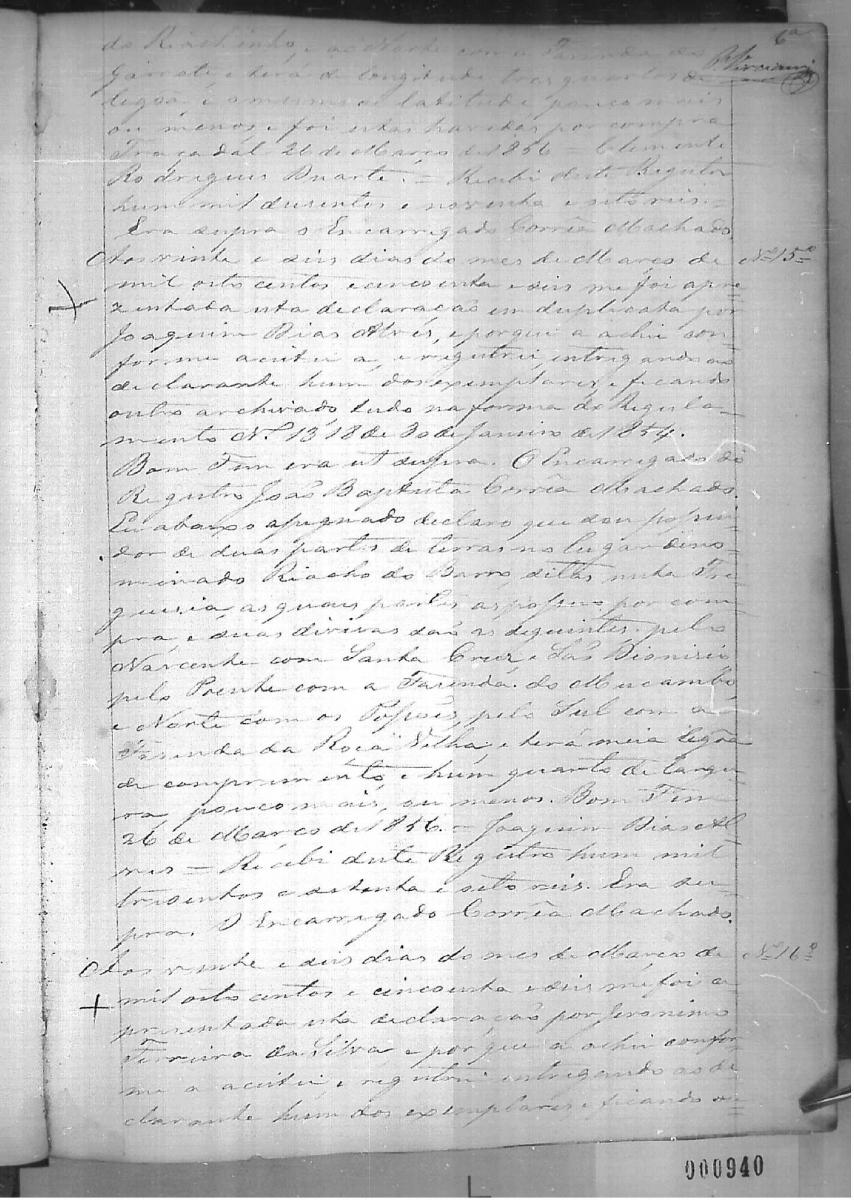 6ª
do Riachinho, e ao Norte com a Fazenda do
Garrote e terá de longitude tres quartos de
legoa é o mesmo de latitude pouco mais
ou menos, e foi estas havidas por compra
Traçadal 26 de Março de 1856 = Clemente
Rodrigues Duarte. = Recebi deste Registro
hum mil dusentos e noventa e sete reis =
Era supra o Encarregado Corrêa Machado.
Aos vinte e seis dias do mes de Março de Nº 15º
mil oito centos e cincoenta e seis me foi apre=
zentada esta declaração em duplicata por
Joaquim Dias Alves, e porque a achei con=
forme aceitei a, e registrei, entregando ao
declarante hum dos exemplares, e ficando
outro archivado, tudo na forma do Regula=
mento Nº 1318 de 30 de Janeiro de 1854.
Bom Fim era ut supra. O Encarregado do
Registro João Baptista Corrêa Machado.
Eu abaixo assignado declaro que sou possui=
dor de duas partes de terras no lugar deno=
minado Riacho do Barro, ditas nesta Fre=
guesia, as quais partes as possuo por com=
pra e suas divisas são as seguintes. pelo
Narcente com Santa Cruz e São Dionizio
pelo Poente com a Fazenda do Mucambo,
e Norte com os Possões, pelo Sul com a
Fazenda da Roça Velha, e terá meia legoa
de comprimento, e hum quarto de largu=
ra, pouco mais, ou menos. Bom Fim
26 de Março de 1856. = Joaquim Dias Al=
ves = Recebi deste Registro hum mil
tresentos e setenta e sete reis. Era su=
pra. O Encarregado Corrêa Machado.
Aos vinte e seis dias do mes de Março de Nº 16º
mil oito centos e cincoenta e seis me foi a
presentada esta declaração por Jeronimo
Ferreira da Silva e por que a achei confor=
me a aceitei, e registrei entregando ao de
clarante hum dos exemplares, e ficando ou=
000940